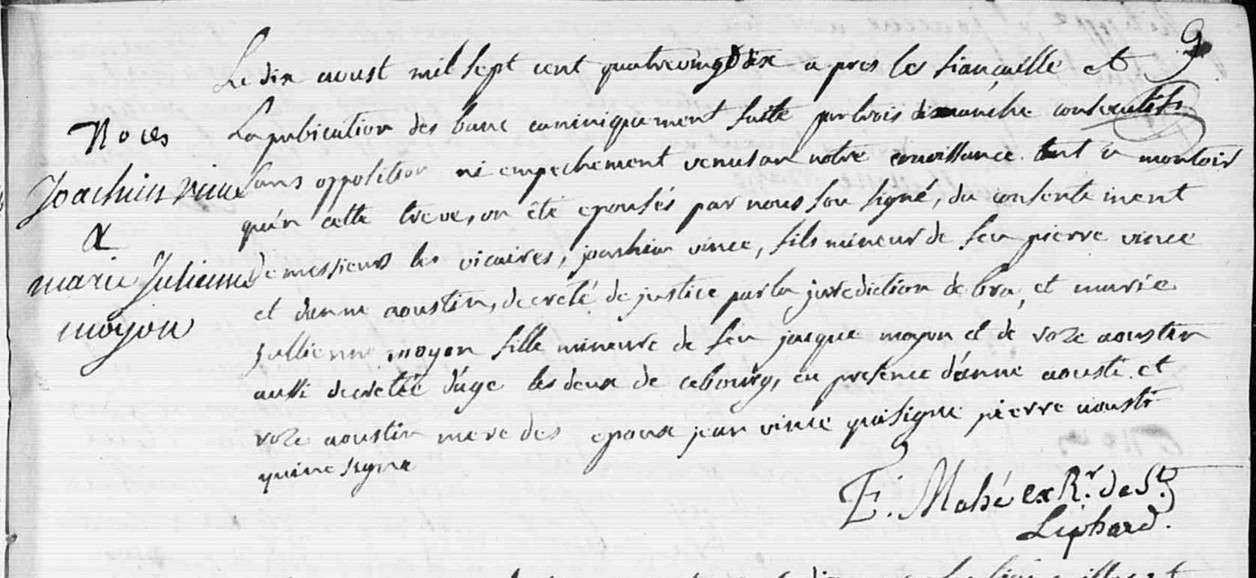 9
Le dix aoust mil sept cent quatrevingt dix a pres les fiancaille et
La publication des banc canoniquement faite partrois dimanche consecutifs
sans opposition ni empechement venus an notre conoissance tant a montoir
qu'en cette treve, on été epousés par nous sou signé, du consentement
de messieurs les vicaires, joachim vince, fils mineur de feu pierre vince
et danne aoustin, decreté de justice par la jurediction de bra, et marie
jullienne moyon fille mineure de feu jacque moyon et de roze aoustin
aussi decretée d'age les deux de cebourg, en presence d'anne aousti et
roze aoustin mere des epoux jean vince qui signe pierre aousti
qui ne signe
E. Mahé ex Rr. de St.
Liphard.
Noces
Joachim vince
&
marie Julienne
moyon